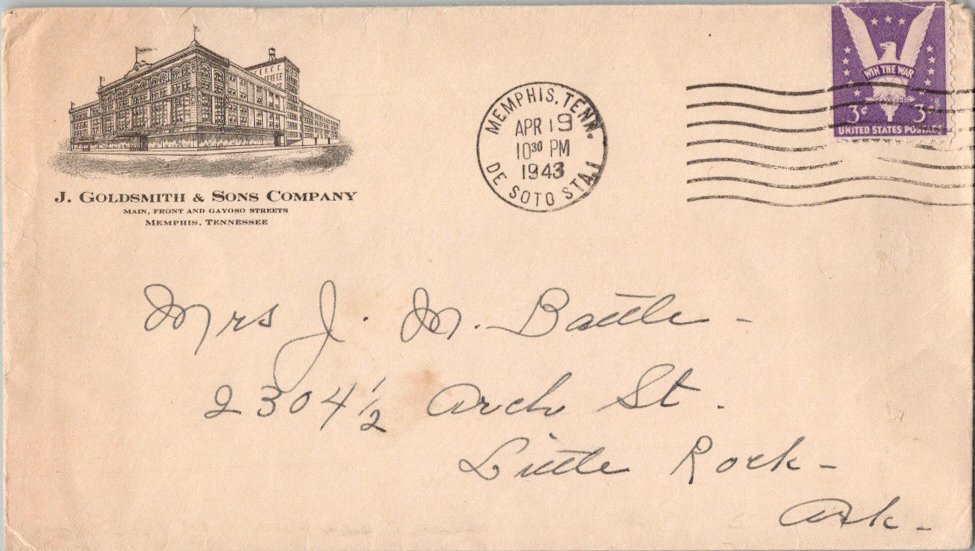 J. GOLDSMITH & SONS COMPANY
MAIN, FRONT AND GAYOSO STREETS
MEMPHIS, TENNESSEE
MEMPHIS, TENN.
APR 19
10 30 PM
1943
DE SOTO STA.
WIN THE WAR
3¢ 3¢
UNITED STATES POSTAGE
Mrs J. M. Battle -
2304 1/2 Arch St.
Little Rock -
Ark -